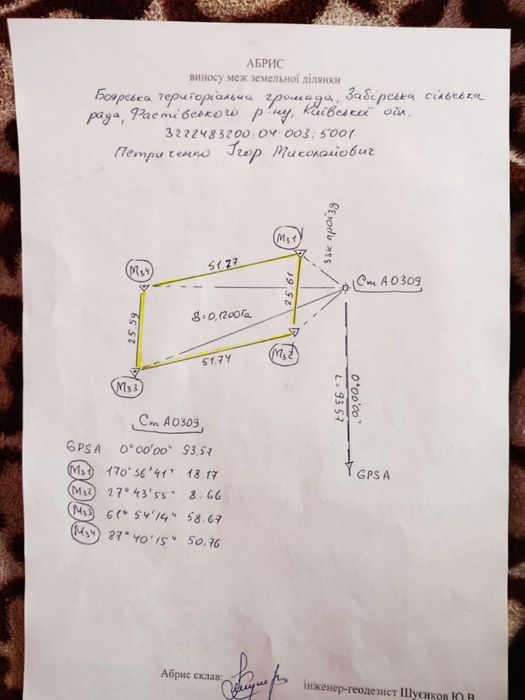 АБРИС
виносу меж земельної ділянки
Боярська територіальна громада, Забірська сільська
рада, Фастівського р-ну, Київської обл.
3222483200:04:003:5001
Петриченко Ігор Миколайович
Мз1
ззк проїзд
51.77
Мз4
Ст А0309
25.61
25.59
S=0,1200га
Мз2
51.74
Мз3
0°00'00"
L=93.57
GPS A
Ст А0309
GPS A 0°00'00" 93.57
Мз1 170°56'41" 18.17
Мз2 27°43'55" 8.66
Мз3 61°54'14" 58.67
Мз4 87°40'15" 50.76
Абрис склав:
інженер-геодезист Шуєнков Ю.В.